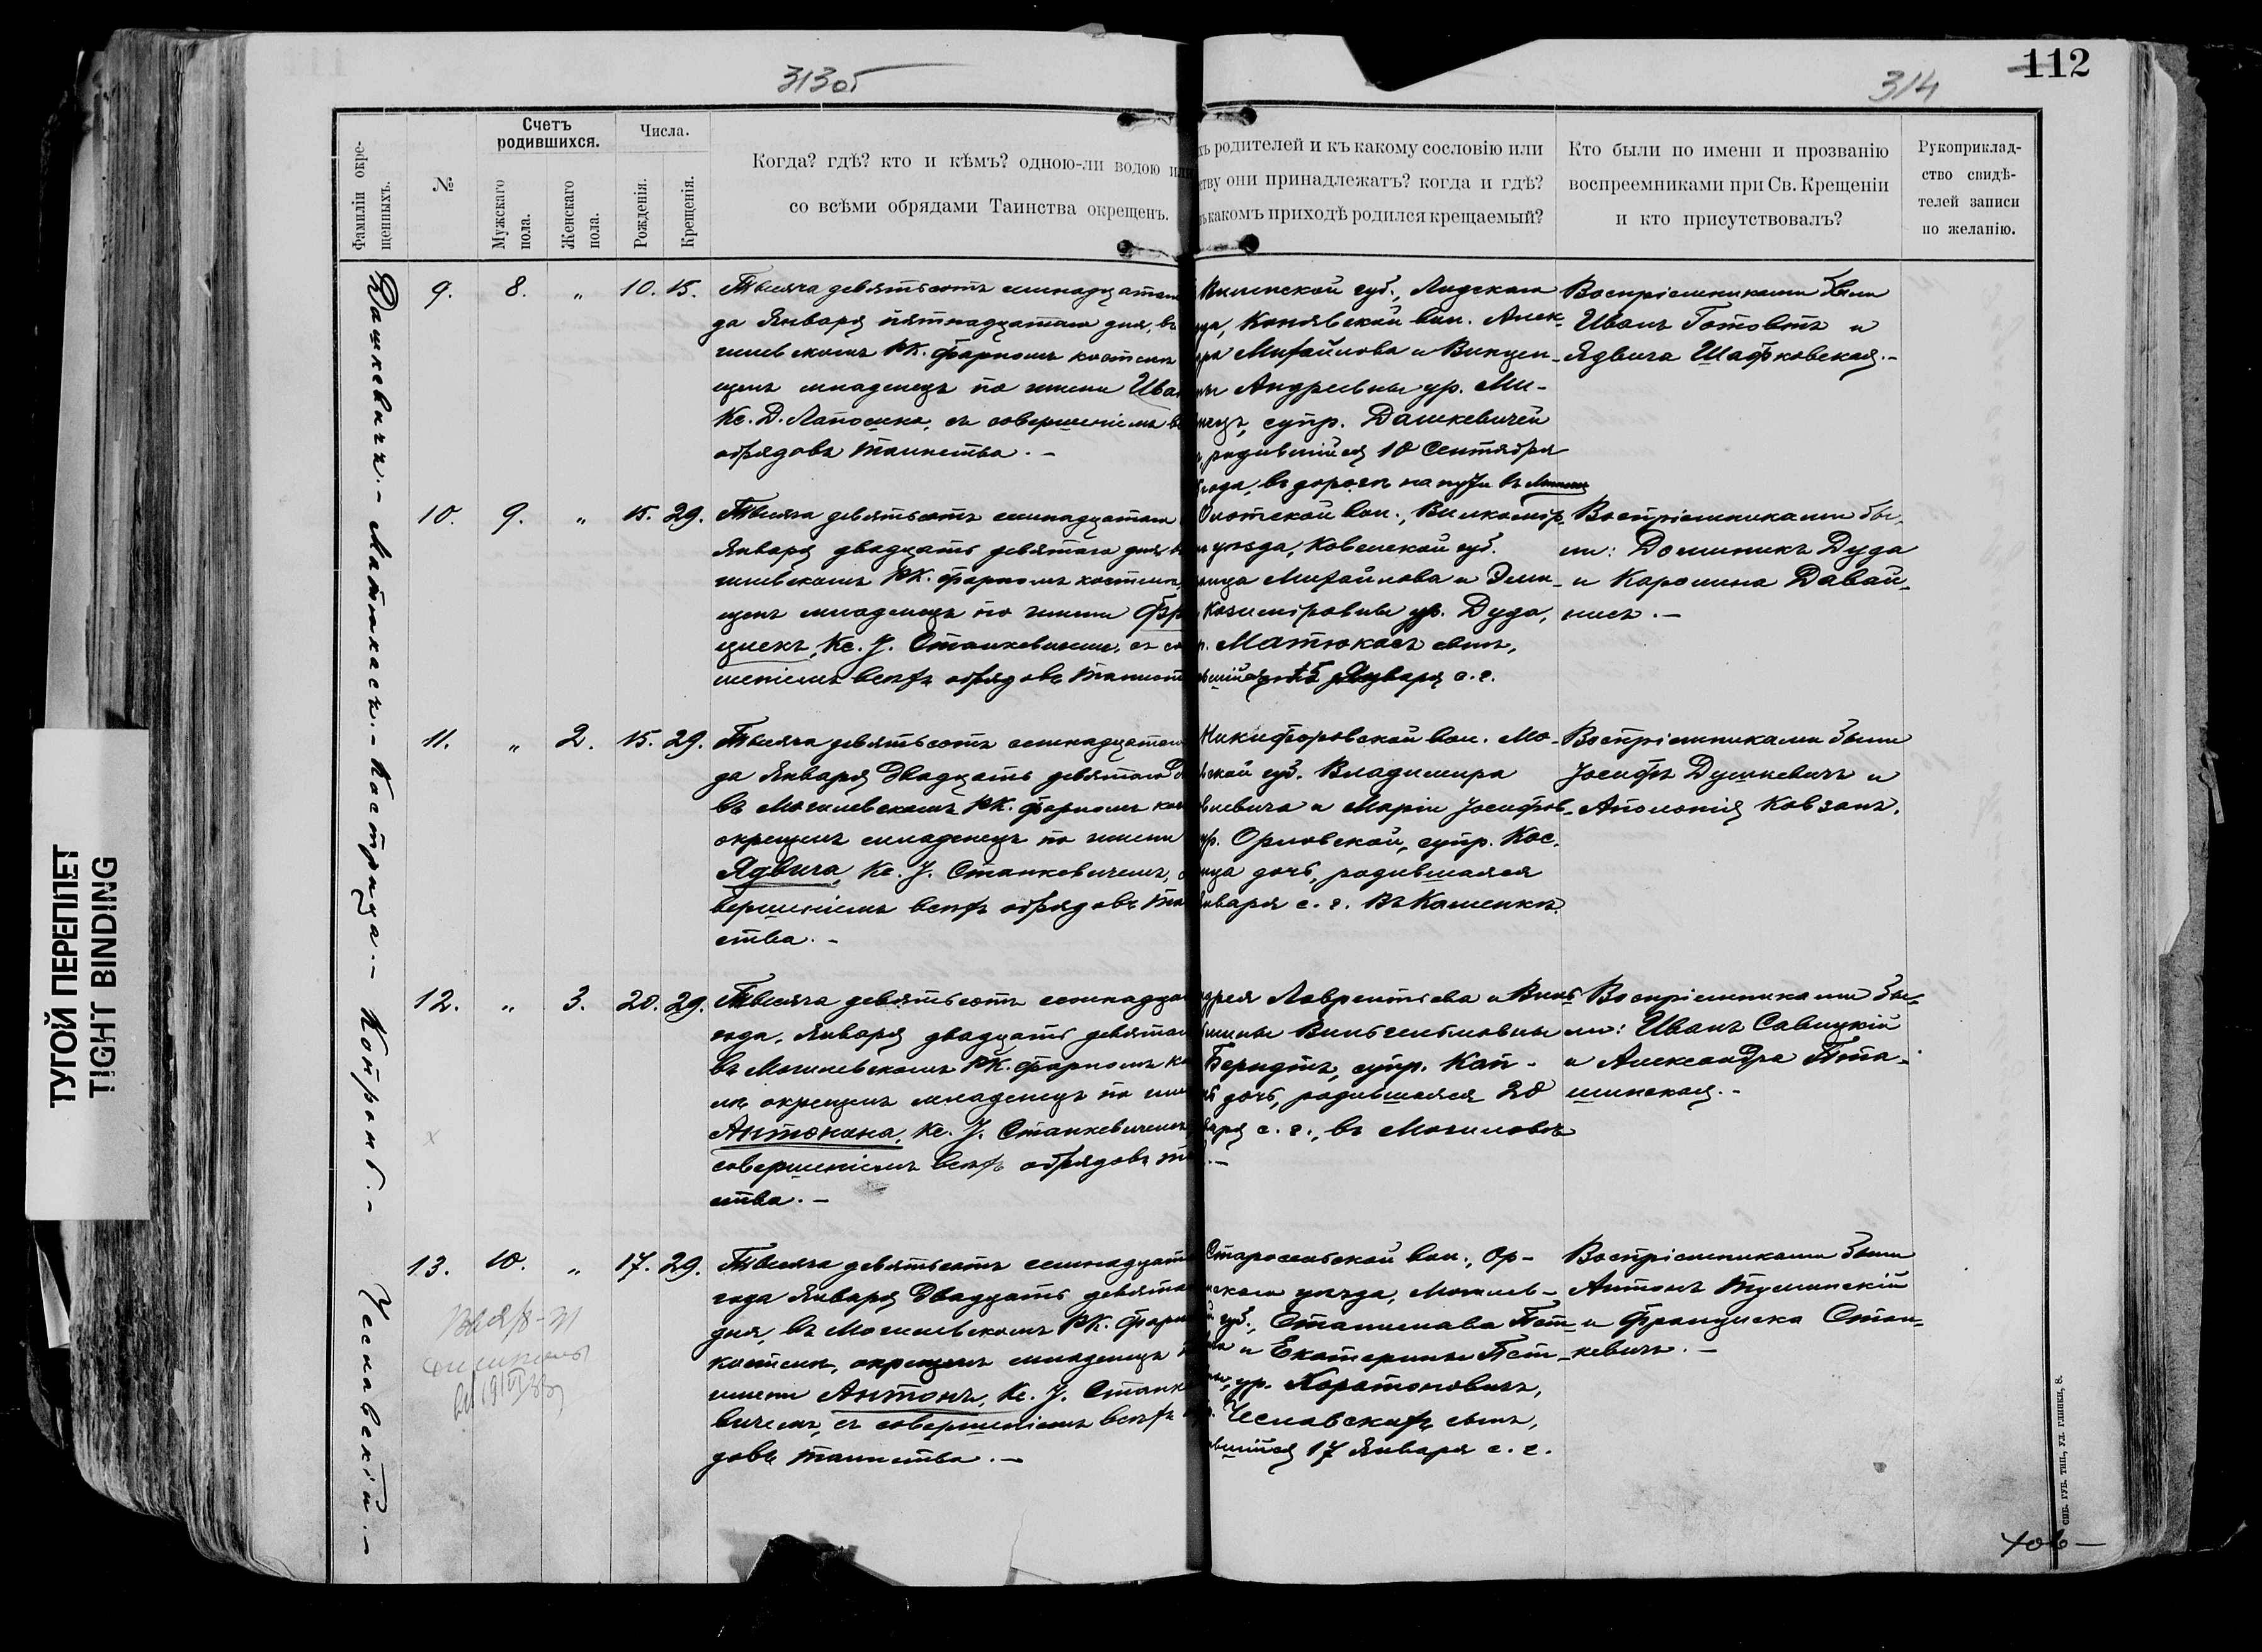 313об
314
112
ТУГОЙ ПЕРЕПЛЕТ
TIGHT BINDING
Фамиліи окре-
щенныхъ.
№
Счетъ
родившихся.
Мужскаго
пола.
Женскаго
пола.
Числа.
Рожденія.
Крещенія.
Когда? гдѣ? кто и кѣмъ? одною-ли водою или
со всѣми обрядами Таинства окрещенъ.
хъ родителей и къ какому сословію или
ству они принадлежатъ? когда и гдѣ?
ъ какомъ приходѣ родился крещаемый?
Кто были по имени и прозванію
воспреемниками при Св. Крещеніи
и кто присутствовалъ?
Рукоприклад-
ство свидѣ-
телей записи
по желанію.
Дашкевичъ.- Матюкасъ.- Кострица.- Копрань.- Чеславскій.-
9. 8. " 10. 15.
Тысяча девятьсотъ семнадцатаго
да Января пятнадцатаго дня, въ
гилевскомъ РК. фарномъ костелѣ
щенъ младенецъ по имени Ива
Кс. Д. Лапошко, съ совершеніемъ в
обрядовъ таинства. -
Виленской губ., Лидскаго
зда, Конявской вол. Алек-
дра Михайлова и Винцен-
ны Андреевны ур. Ми-
супр. Дашкевичей
родившійся 10 Сентября
года, въ дорогѣ на пути въ
Воспріемниками были
Иванъ Готовтъ и
Ядвига Шафковская.-
10. 9. " 15. 29.
Тысяча девятьсотъ семнадцатаго
Января двадцать девятаго дня въ
гилевскомъ РК. фарномъ костелѣ,
щенъ младенецъ по имени Фр
цискъ, Кс. J. Станкевичемъ, съ со
шеніемъ всѣхъ обрядовъ таинст
вол., Вилкомір-
уѣзда, Ковенской губ.
Михайлова и Эми-
Казиміровны ур. Дуда,
Матюкасъ сынъ,
вшійся 15 Января с. г.
Воспріемниками бы-
ли: Доминикъ Дуда
и Каролина Давай-
нисъ.-
11. " 2. 15. 29.
Тысяча девятьсотъ семнадцатаго
да Января двадцать девятаго д
въ Могилевскомъ РК. фарномъ кос
окрещенъ младенецъ по имени
Ядвига, Кс. J. Станкевичемъ, с
вершеніемъ всѣхъ обрядовъ таи
ства.-
Никифоровской вол. Мо-
вской губ. Владимира
влевича и Маріи Іосифов-
ур. Орловской, супр. Кос-
ица дочь, родившаяся
нваря с. г. въ Каменкѣ.
Воспріемниками были
Іосифъ Душкевичъ и
Аполонія Ковзанъ.
12. " 3. 20. 29.
Тысяча девятьсотъ семнадца
года, Января двадцать девятаго
въ Могилевскомъ РК. фарномъ ко
лѣ окрещенъ младенецъ по име
Антонина, Кс. J. Станкевичемъ
совершеніемъ всѣхъ обрядовъ та
ства.-
дрея Лаврентьева и Виль
ины Вильгельмовны
Берндтъ, супр. Коп-
дочь, родившаяся 20
варя с. г., въ Могилевѣ
Воспріемниками бы-
ли: Иванъ Савицкій
и Александра Пта-
шинская.-
13. 10. " 17. 29.
Тысяча девятьсотъ семнадцата
года Января двадцать девятаго
дня, въ Могилевскомъ РК. фарн
костелѣ, окрещенъ младенецъ п
имени Антонъ, Кс. J. Станке
вичемъ, съ совершеніемъ всѣхъ
довъ таинства.-
Старосельской вол., Ор-
нскаго уѣзда, Могилев-
губ., Станислава Пет-
и Екатерины Пет-
ур. Харатоновичъ,
Чеславскихъ сынъ,
вшійся 17 Января с. г.
Воспріемниками были
Антонъ Туминскій
и Франциска Стан-
кевичъ.-
СПБ. ГУБ. ТИП., УЛ. ГЛИНКИ, 8.